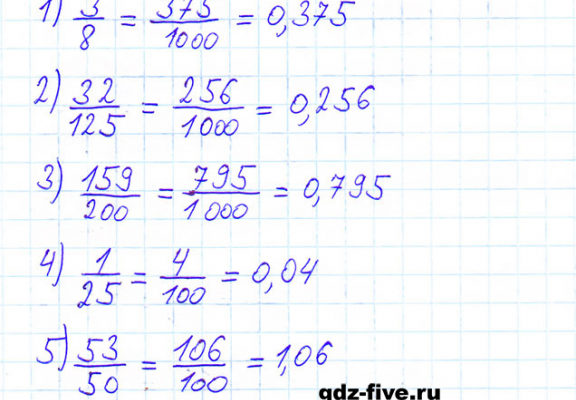 1) 3/8 = 375/1000 = 0,375
2) 32/125 = 256/1000 = 0,256
3) 159/200 = 795/1000 = 0,795
4) 1/25 = 4/100 = 0,04
5) 53/50 = 106/100 = 1,06
gdz-five.ru